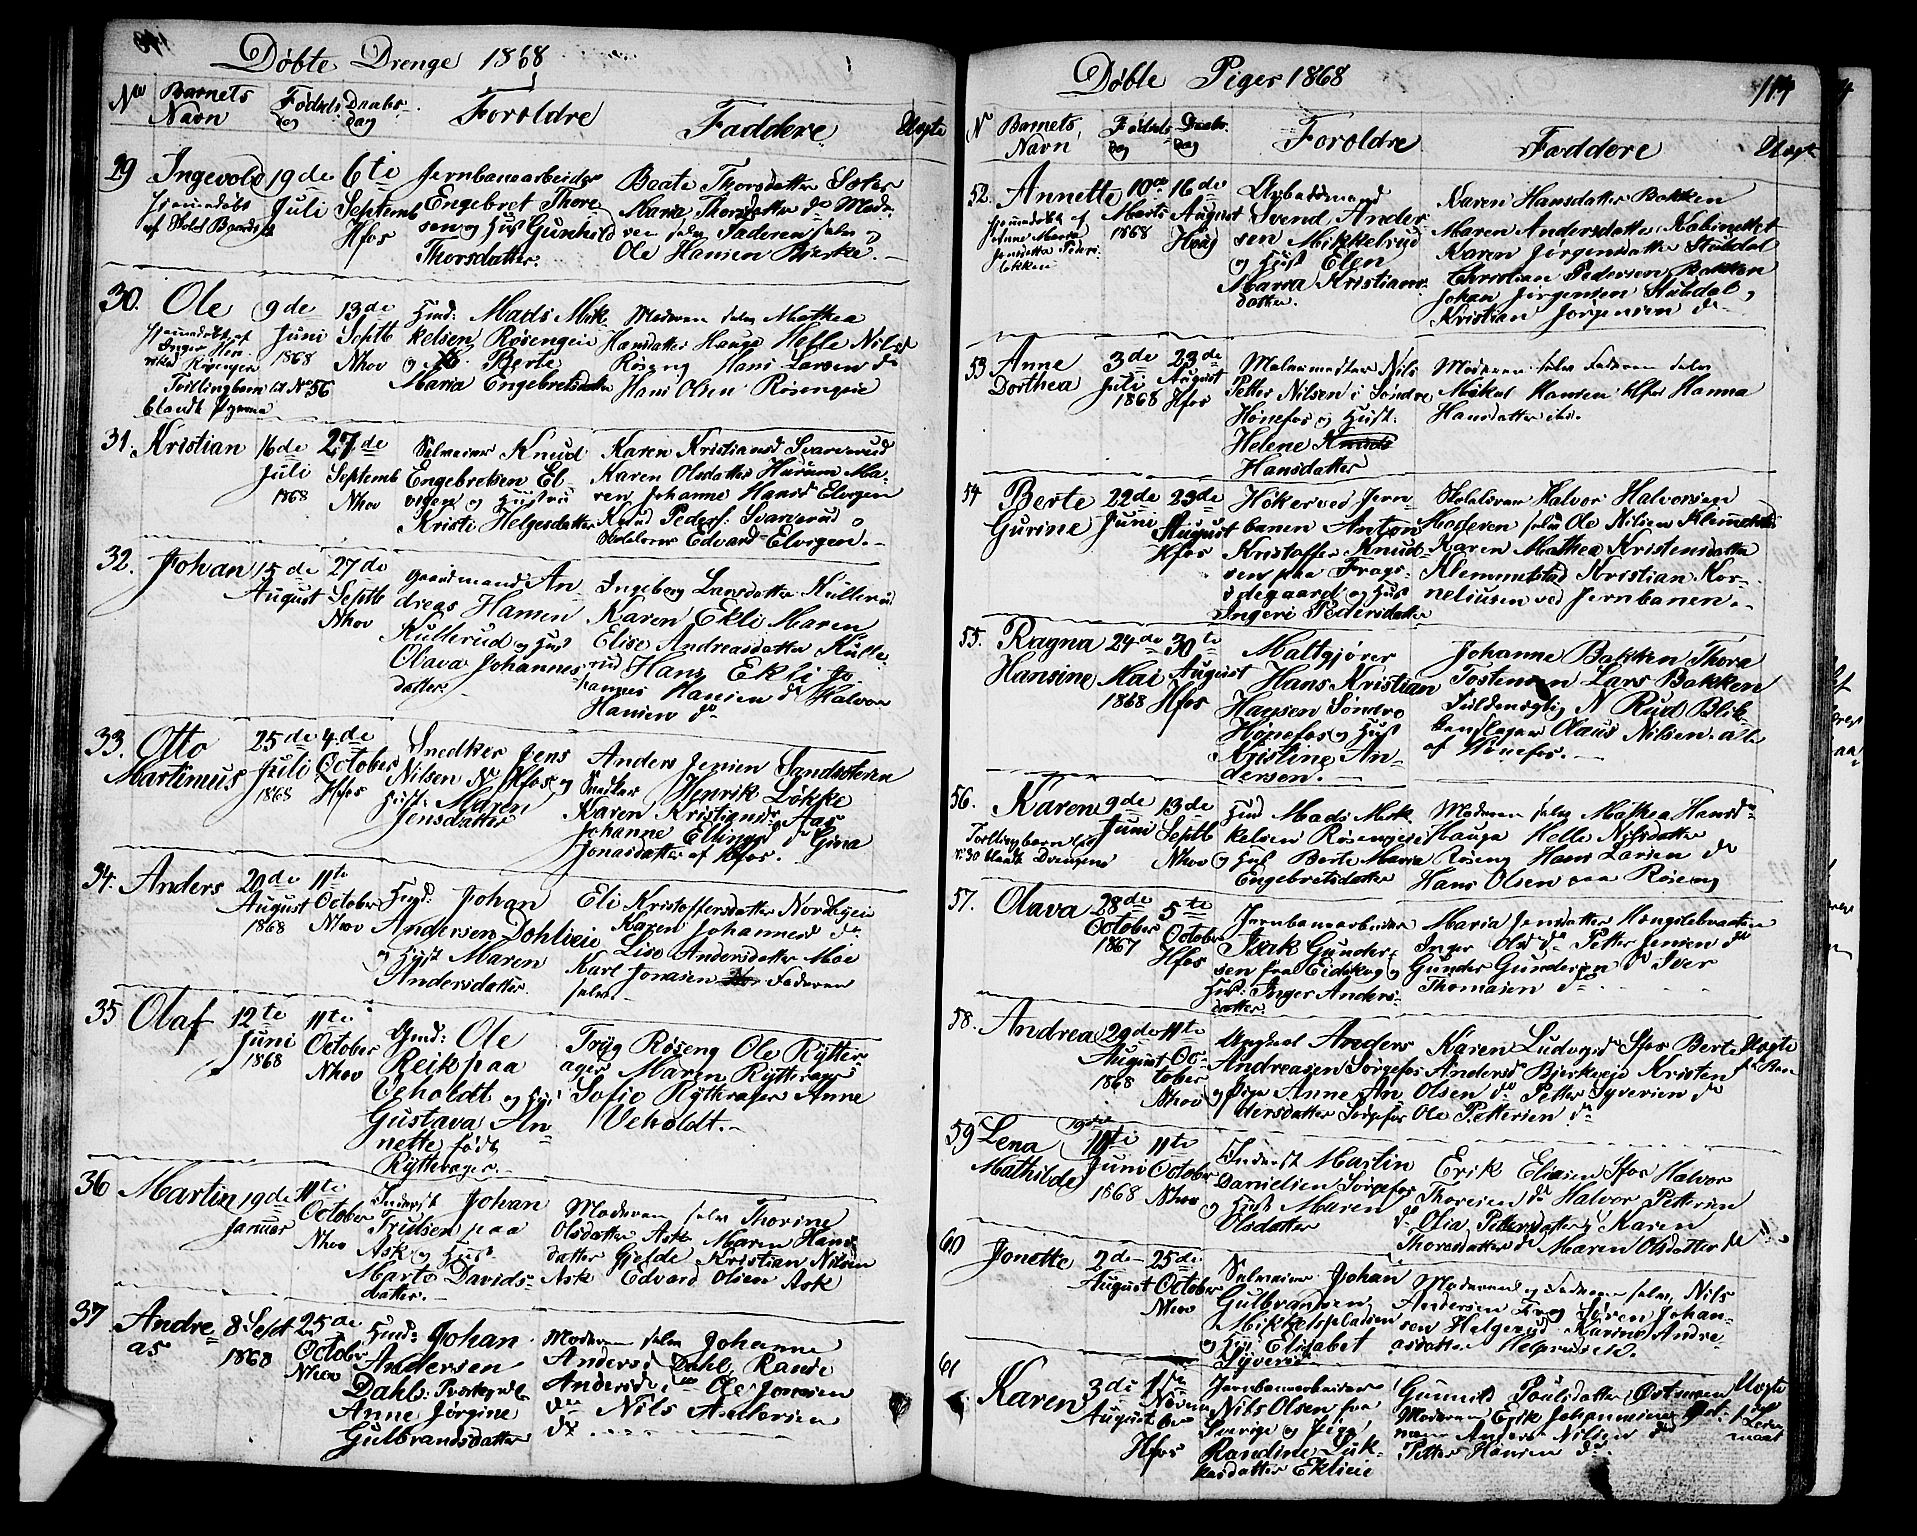 Døbte Drenge 1868
No Barnets Navn Fødsels Dag Daabs dag Foroldre Faddere Uegte
29 Ingevold
hjemmedøbt
af
19de Juli
6te Septemb Hfos
Jernbanearbeider
Engebret Thore
sen og Hust Gunhild
Thorsdatter.
Beate Thorsdatter Soter
Maria Thorsdatter do Mode-
ren selv Faderen selv og
Ole Hansen Bjerke.
30. Ole
hjemmedøbt af
Inger Hen
rikka Røsengen
Tvillingbarn cf No 56
blandt Pigerne
9de Juni 1868
13de Septb Nhov
Gmd: Mads Mik
kelsen Røsengen
og H. Berte
Maria Engebretsdatter
Moderen selv Mathea
Hansdatter Hauga Helle Nilsd
Røseng Hans Larsen do
Hans Olsen Røsengen
31. Kristian
16de Juli 1868
27de Septemb Nhov
Selveier Knud
Engebretsen El
vigen og Hustru
Kristi Helgesdatter
Karen Kristiansd Svarverud
Karen Olsdatter Harum Ma-
ren Johanne Hansd Elvigen
Knud Peders: Svarverud og
Edvard Elvigen.
32. Johan
15de August
27de Septb Nhov
Gaardmand An-
dreas Hansen
Kullerud og Hust
Olava Johannes-
datter.
Ingeborg Larsdatter Kullerud
Karen Ekli Maren
Elise Andreasdatter Kulle-
rud Hans Ekli Jo-
hannes Hansen do Halvor
Hansen do
33. Otto
Martinus
25de Juli 1868
4de October Hfos
Snedker Jens
Nilsen N Hfos og
Hust. Maren
Jensdatter
Anders Jensen Sandsteren
Snedker Henrik Løkke
Karen Kristiansdr Aas
Johanne Ellingsd do Gina
Jonasdatter af Hfos.
34. Anders
20de August 1868
11te October Nhov
Johan
Andersen Dohlieie
og Hust Maren
Andersdatter
Eli Kristoffersdatter Nordlieie
Karen Johannesd do
Lise Andersdatter Moe
Karl Jonasen Faderen
selv.
35 Olaf
12te Juni 1868
11te October Nhov
Gmd: Ole
Reik paa
Veholdt og Hust
Gustava An-
nette født
Rytterager.
Tryg Røseng Ole Rytter-
ager Maren Rytterager
Sofie Rytterager Anne
Veholdt.
36 Martin
19de Januar
11te October Nhov
Inderst Johan
Trulsen paa
Ask og Hust
Marte Davids-
datter.
Moderen selv Thorine
Olsdatter Ask Maren Hans
datter Gjelde Kristian Nilsen
Ask Edvard Olsen Ask
37 Andre-
as
8 Sept 1868
25de October Nhov
Hmd: Johan
Andersen
Dahl:
Anne Jørgine
Gulbrandsdatter
Moderen selv Johanne
Andersd Dahl Randi
Andersd do Ole Jonsen
do Nils Andersen
do
Døbte Piger 1868
114
No Barnets Navn Fødsels Dag Daabs Dag Foroldre Faddere Uegte
52. Annette
hjemmedøbt af
Anne Marie
Jensdatter Peders
løkken
10de Marts 1868
16de August Haug
Arbeidsmand
Svend Ander
sen Mikkelrud
og Hust Elen
Maria Kristians-
datter.
Karen Hansdatter Bakken
Maren Andersdatter Kabinettet
Karen Jørgensdatter Stubdal
Christian Pedersen Bakken
Johan Jørgensen Stubdal og
Kristian Jørgensen do
53 Anne
Dorthea
3de Juli 1868
23de August Hfos
Malermester Nils
Petter Nilsen i Søndre
Hønefos og Hust:
Helene Knuds
Hansdatter
Moderen selv Faderen selv
Mikal Hansen Hfos Hanna
Hansdatter ibd.
54 Berte
Gurine
22de Juni
23de August Hfos
Høker ved Jern-
banen Anton
Kristoffer Knud-
sen paa Frogs-
ødegaard og Hust
Ingeri Pedersdatter
Halvor Halvorsen
Moderen selv Ole Nilsen Klemmetsta
Karen Mathea Kristensdatter
Klemmetstad Kristian Kor-
neliusen ved Jernbanen.
55. Ragna
Hansine
24de Mai 1868
30te August Hfos
Maltgjører
Hans Kristian
Hansen Søndre
Hønefos og Hust
Kristine An-
dersen.
Johanne Bakken Thora
Tostensen Lars Bakken
Fuldmægtig N Rud Blik-
kenslager Olaus Nilsen alle
af Hønefos.
56. Karen
Tvillingbarn cf
No 30 blandt Drengene
9de Juni
13de Septb Nhov
Gmd Mads Mik
kelsen Røsengen
og Hust Berte Maria
Engebretsdatter
Moderen selv Mathea Hansd
Hauga Helle Nilsdatter
Røseng Hans Larsen do
Hans Olsen paa Røseng
57. Olava
28de October 1867
5te October Hfos
Jernbanearbeider
Isak Gunder-
sen fra Eidskog og
Hust: Inger Anders-
datter
Maria Jensdatter Mengslebraaten
Inger Olsd do Petter Jensen do
Gunder Gundersen do Iver
Thomasen do
58. Andrea
20de August 1868
11te October Nhov
Ungkarl Anders
Andreasen Sørgefos
og Pige Anne An
dersdatter Sørgefos
Karen Ludvigsd Sfos Berte
Andersd Bjerkveje Kristen
Olsen do Petter Syversen do
Ole Pettersen do
Uegte
59 Lena
Mathilde
19de 11te Juni 1868
11te October Nhov
Inderst Martin
Danielsen Sørgefos
og Hust Maren
Olsdatter
Erik Eliasen Sfos Halvor
Thoresen do Halvor Pettersen
do Olia Pettersdatter Karen
Thoresdatter do Maren Olsdatter do
60 Jonette
2de August
25de October Nhov
Selveier Johan
Gulbransen
Mikkelspladsen
og Hust Elisabet
Syversd
Moderen og Faderen selv, Nils
Andersen Søren Johan-
sen Helgerud Karine Andre-
asdatter
61 Karen
3de August
1ste November Hfos
Jernbanearbeider
Nils Olsen fra
Sverige og Pige
Randine Luk-
kasdatter Eklieie
Gunnild Poulsdatter Østmoen
Moderen Erik Johannesen
Anders Nilsen do
Petter Hansen do
Uegte